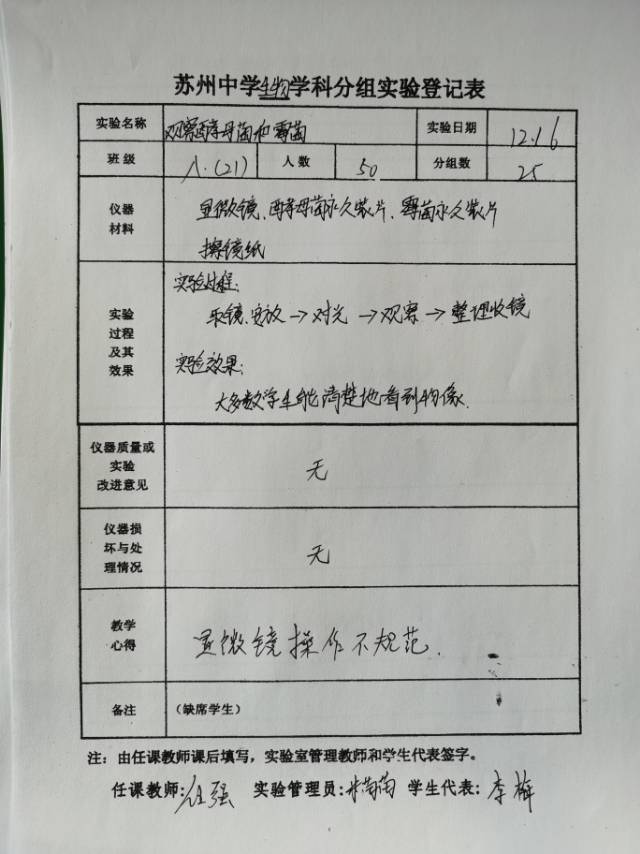 苏州中学生物学科分组实验登记表
实验名称 观察酵母菌和霉菌 实验日期 12.16
班级 八.(21) 人数 50 分组数 25
仪器 显微镜、酵母菌永久装片、霉菌永久装片
材料 擦镜纸
实验过程:
实验 取镜、安放→对光→观察→整理收镜
过程
及其
效果 实验效果:
大多数学生能清楚地看到物像.
仪器质量或
实验 无
改进意见
仪器损
坏与处 无
理情况
教学
心得 显微镜操作不规范.
备注 (缺席学生)
注:由任课教师课后填写,实验室管理教师和学生代表签字。
任课教师:任强 实验管理员:苗苗 学生代表:李梅